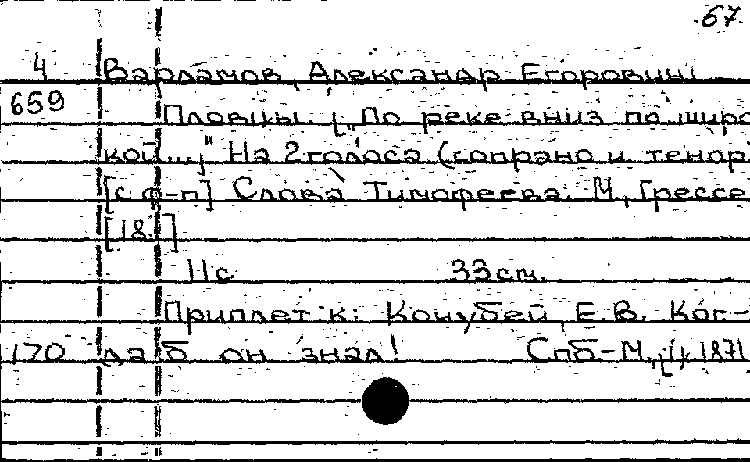 67
4 Варламов, Александр Егорович
659 Пловцы. ["По реке вниз по широ
кой...]" На 2 голоса (сопрано и тенор)
[с ф-п] Слова Тимофеева. М, Грессе
[18 ]
11с 33 cm.
Приплет к: Кочубей, Е.В. Ког-
170 да б он знал! Спб-М., 1871